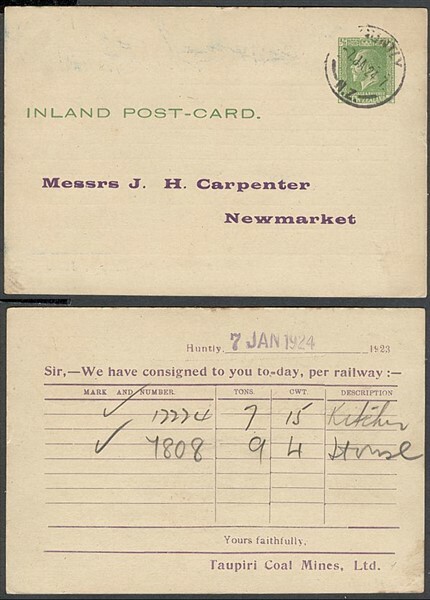 HUNTLY
7 JA 24 7
N.Z.
INLAND POST-CARD.
Messrs J. H. Carpenter
Newmarket
Huntly, 7 JAN 1924 1923
Sir,—We have consigned to you to-day, per railway:—
MARK AND NUMBER. TONS. CWT. DESCRIPTION
17774 7 15 Kitchen
7808 9 4 House
Yours faithfully,
Taupiri Coal Mines, Ltd.